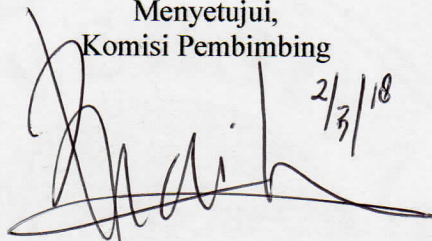 Menyetujui,
Komisi Pembimbing
2/3/18